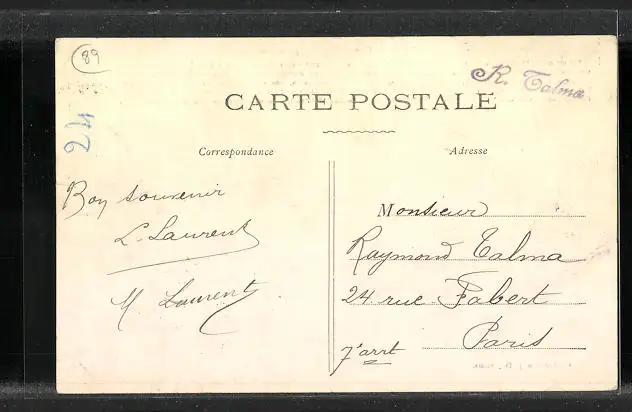 89
R. Talma
CARTE POSTALE
24
Correspondance
Adresse
Bon souvenir
L. Laurent
M Laurent
Monsieur
Raymond Talma
24 rue Fabert
Paris
7e arrt